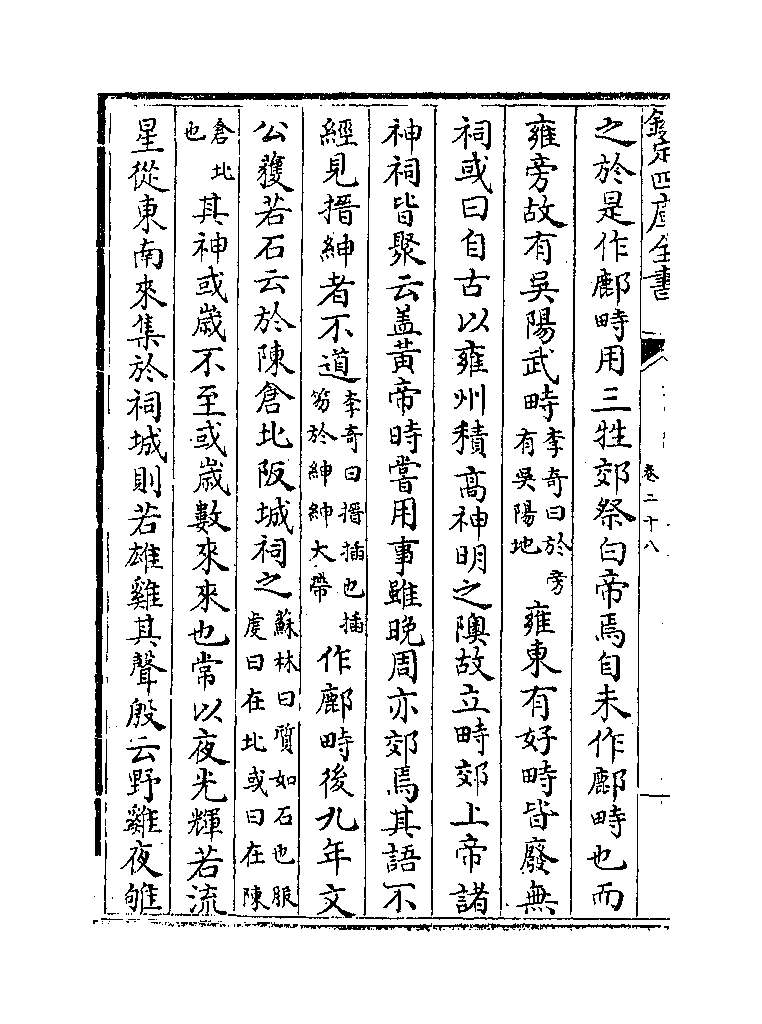 欽定四庫全書
卷二十八
之於是作鄜畤用三牲郊祭白帝焉自未作鄜畤也而
雍旁故有吳陽武畤李奇曰於旁有吳陽地雍東有好畤皆廢無
祠或曰自古以雍州積高神明之隩故立畤郊上帝諸
神祠皆聚云盖黃帝時嘗用事雖晚周亦郊焉其語不
經見搢紳者不道李奇曰搢插也插笏於紳紳大帶作鄜畤後九年文
公獲若石云於陳倉北阪城祠之蘇林曰質如石也服虔曰在北或曰在陳
倉北也其神或歲不至或歲數來來也常以夜光輝若流
星從東南來集於祠城則若雄雞其聲殷云野雞夜雊